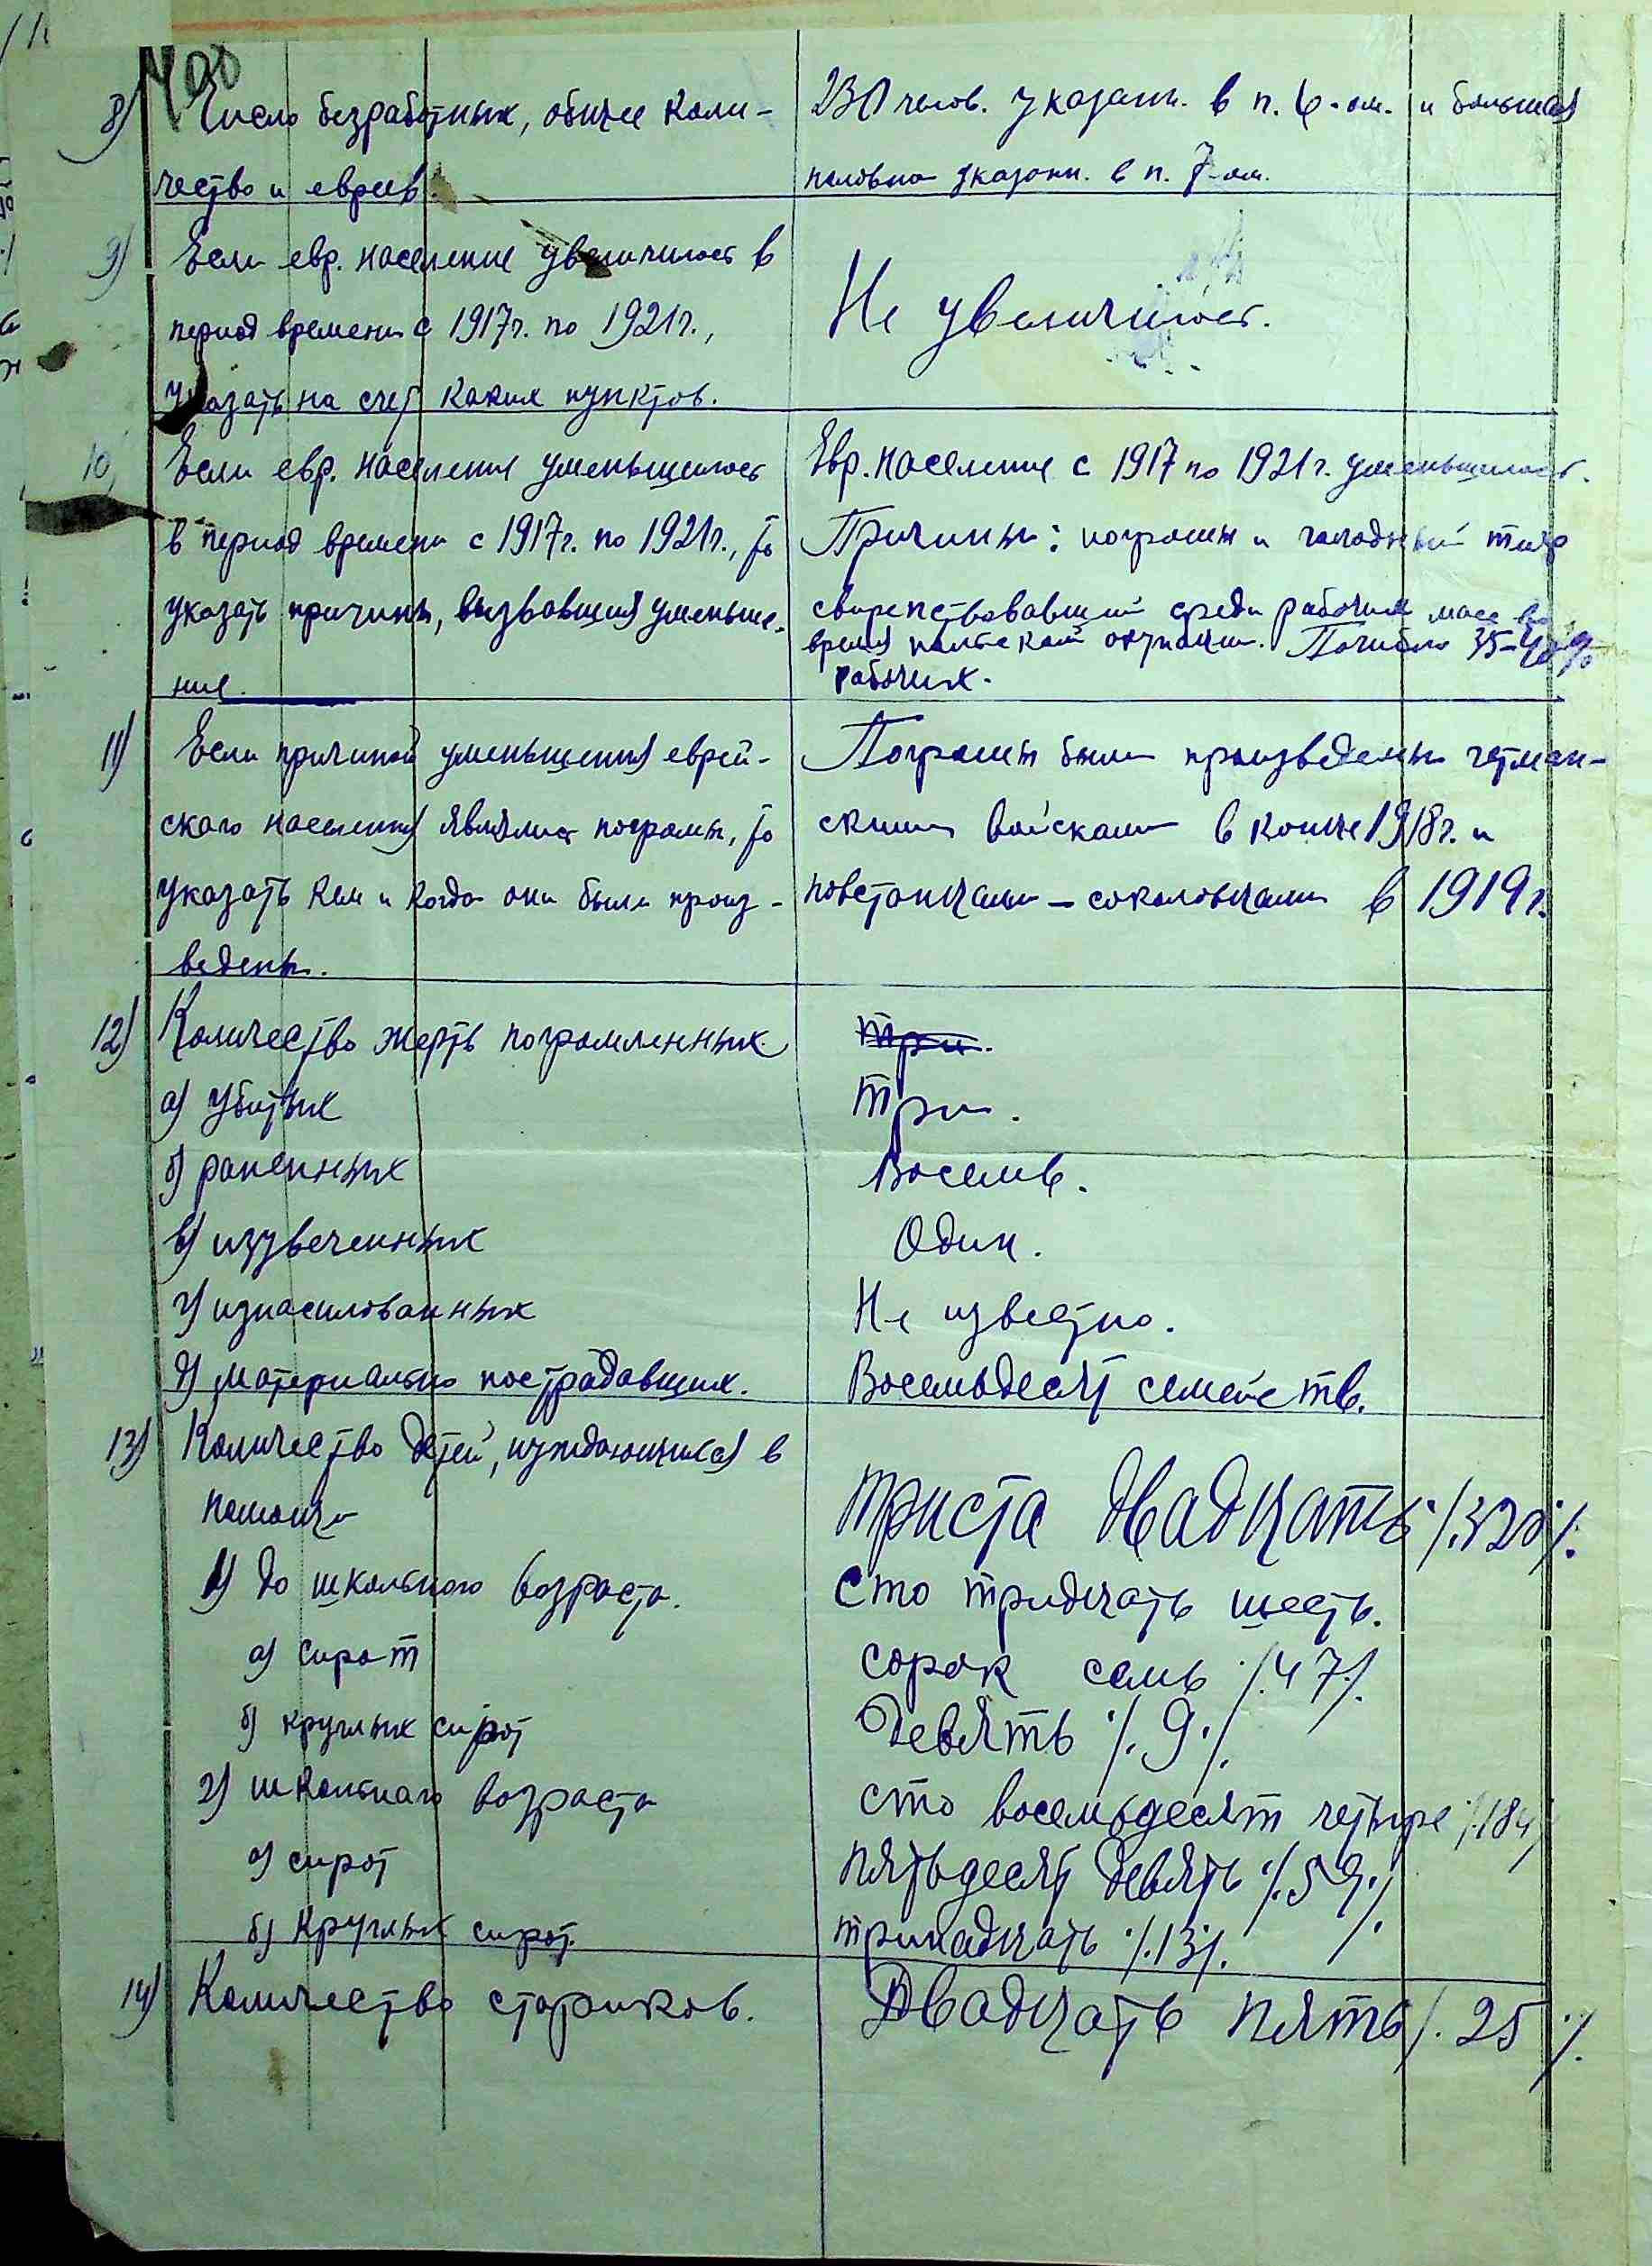 8) Число безработных, общее коли-
чество и евреев.
230 челов. указанн. в п. 6-ом. и большая
половина указанн. в п. 7-ом.
9) Если евр. население увеличилось в
период времени с 1917г. по 1921г.,
указать на счет каких пунктов.
Не увеличилось.
10) Если евр. население уменьшилось
в период времени с 1917г. по 1921г., то
указать причины, вызвавшия уменьше-
ние.
Евр. население с 1917 по 1921г. уменьшилось.
Причины: погромы и голодный тиф
свирепствовавший среди рабочих масс во
время польской окупации. Погибло 35-40%
рабочих.
11) Если причиной уменьшения еврей-
ского населения являлись погромы, то
указать кем и когда они были произ-
ведены.
Погромы были произведены гетман-
скими войсками в конце 1918г. и
повстанцами-соколовцами в 1919г.
12) Количество жертв погромленных
три.
а) убитых
три.
б) раненных
Восемь.
в) изувеченных
Один.
г) изнасилованных
Не известно.
д) материально пострадавших.
Восемьдесят семейств.
13) Количество детей, нуждающихся в
помощи
триста двадцать ./.320./.
1) до школьного возраста.
сто тридцать шесть.
а) сирот
сорок семь ./.47./.
б) круглых сирот
девять ./.9./.
2) школьного возраста
сто восемьдесят четыре ./.184/
а) сирот
пятьдесят девять ./.59./.
б) круглых сирот.
тринадцать ./.13./.
14) Количество стариков.
Двадцать пять ./.25./.